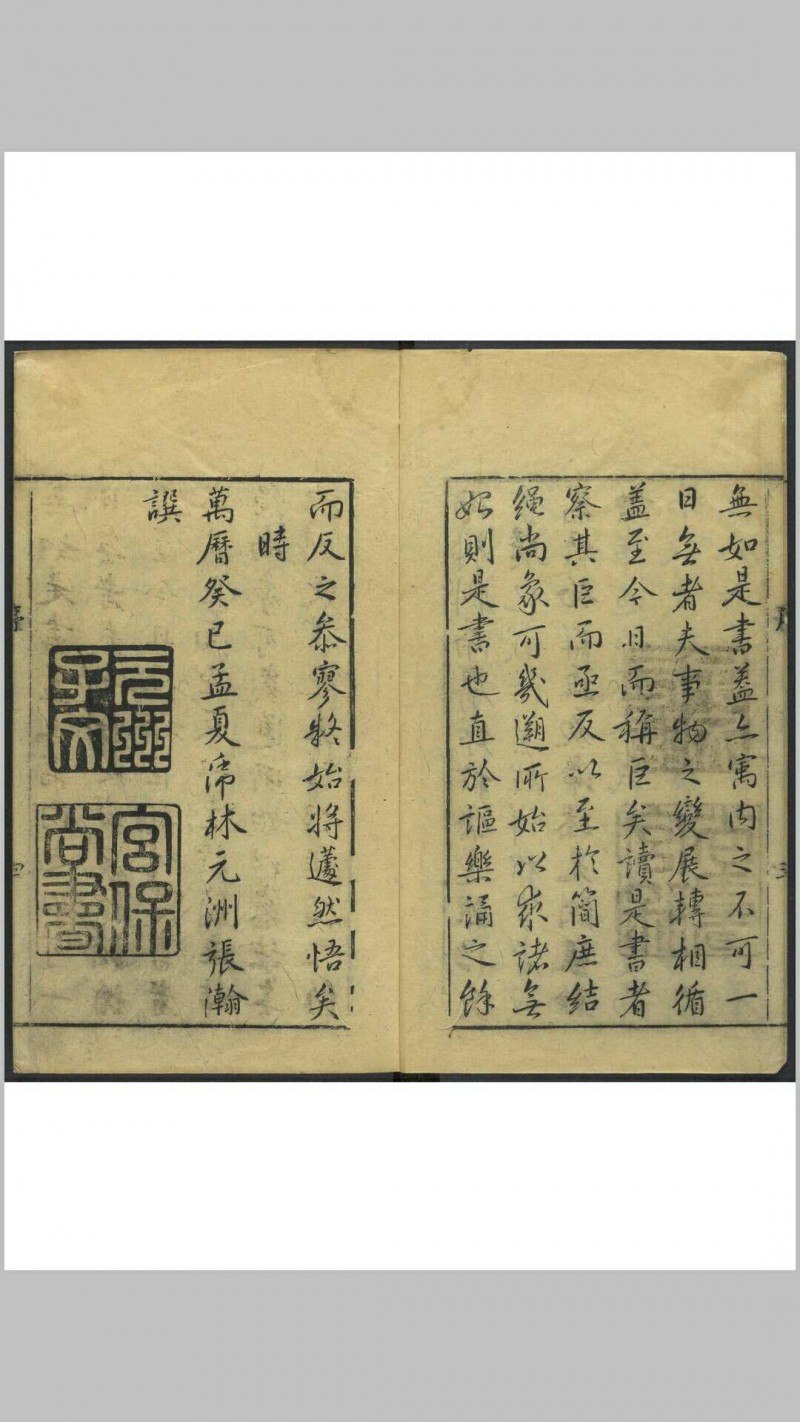 無如是書蓋亦寓内之不可一
日無者夫事物之變展轉相循
蓋至今日而稱巨矣讀是書者
察其巨而亟反以至於簡庶結
繩尚象可幾遡所始以衆諸無
始則是書也直於謳樂誦之餘
而反之叅寥終始將蘧然悟矣
時
萬曆癸巳孟夏席林元洲張瀚
譔
元洲
子文
宮保
尚書
序
四